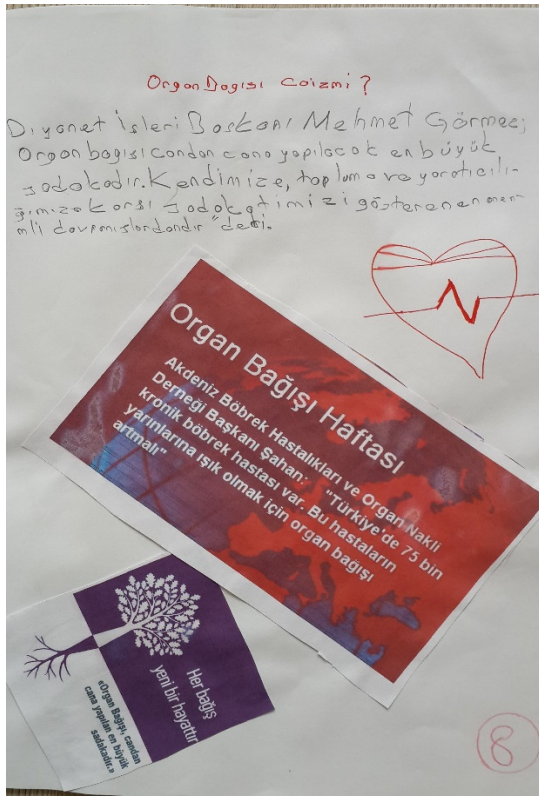 Organ Bagısı Caizmi?
Dıyanet İşleri Baskanı Mehmet Görmez;
Organ bagısı candan cana yapılacak en büyük
sadakadır. Kendimize, topluma ve yaratıcılı-
ğımıza karsı sadakatimizi gösteren en önem-
mli davranışlardandır" dedi.
Organ Bağışı Haftası
Akdeniz Böbrek Hastalıkları ve Organ Nakli
Derneği Başkanı Şahan: "Türkiye'de 75 bin
kronik böbrek hastası var. Bu hastaların
yarınlarına ışık olmak için organ bağışı
artmalı"
Her bağış
yeni bir hayattır
«Organ Bağışı, candan
cana yapılan en büyük
sadakadır.»
8